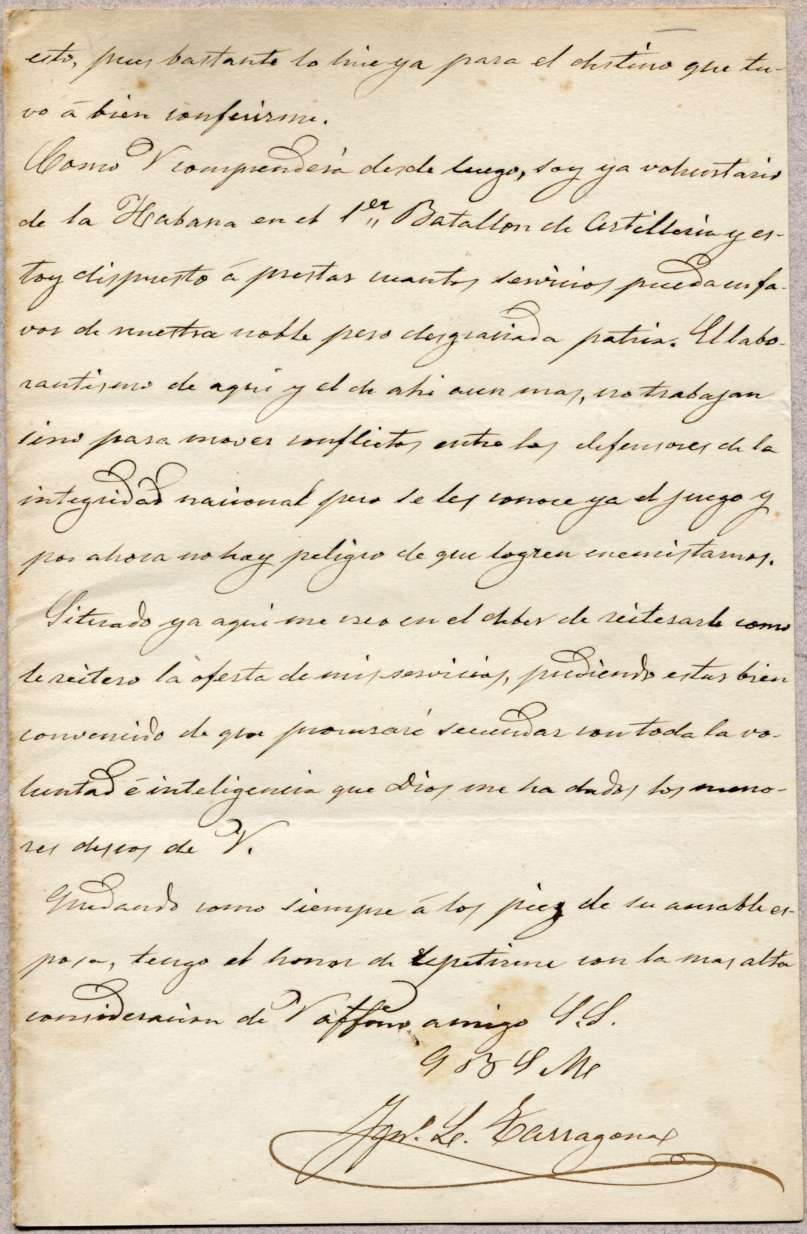 esto, pues bastante lo hice ya para el destino que tu-
vo á bien conferirme.
Como V comprenderá desde luego, soy ya voluntario
de la Habana en el 1er Batallon de Artilleria y es-
toy dispuesto á prestar cuantos servicios pueda en fa-
vor de nuestra noble pero desgraciada patria. El labo-
rantismo de aqui y el de ahi aun mas, no trabajan
sino para mover conflictos entre los defensores de la
integridad nacional pero se les conoce ya el juego y
por ahora no hay peligro de que logren enemistarnos.
Situado ya aqui me creo en el deber de reiterarle como
le reitero la oferta de mis servicios, pudiendo estar bien
convencido de que procuraré secundar con toda la vo-
luntad é inteligencia que Dios me ha dados los meno-
res deseos de V.
Quedando como siempre á los piez de su amable es-
posa, tengo el honor de repetirme con la mas alta
consideracion de V affmo amigo S.S.
Q B S M
L. Tarragona